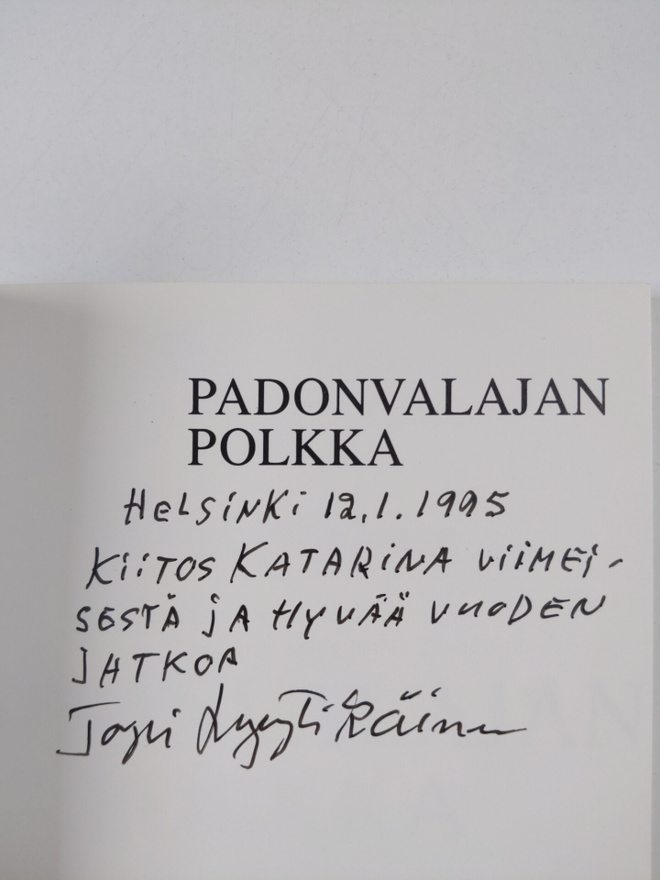 PADONVALAJAN
POLKKA
HELSiNKi 12.1.1995
KiiTOS KATARiNA ViiMEi-
SESTÄ jA HYVÄÄ VUODEN
JATKOA
Topi Lyytikäinen